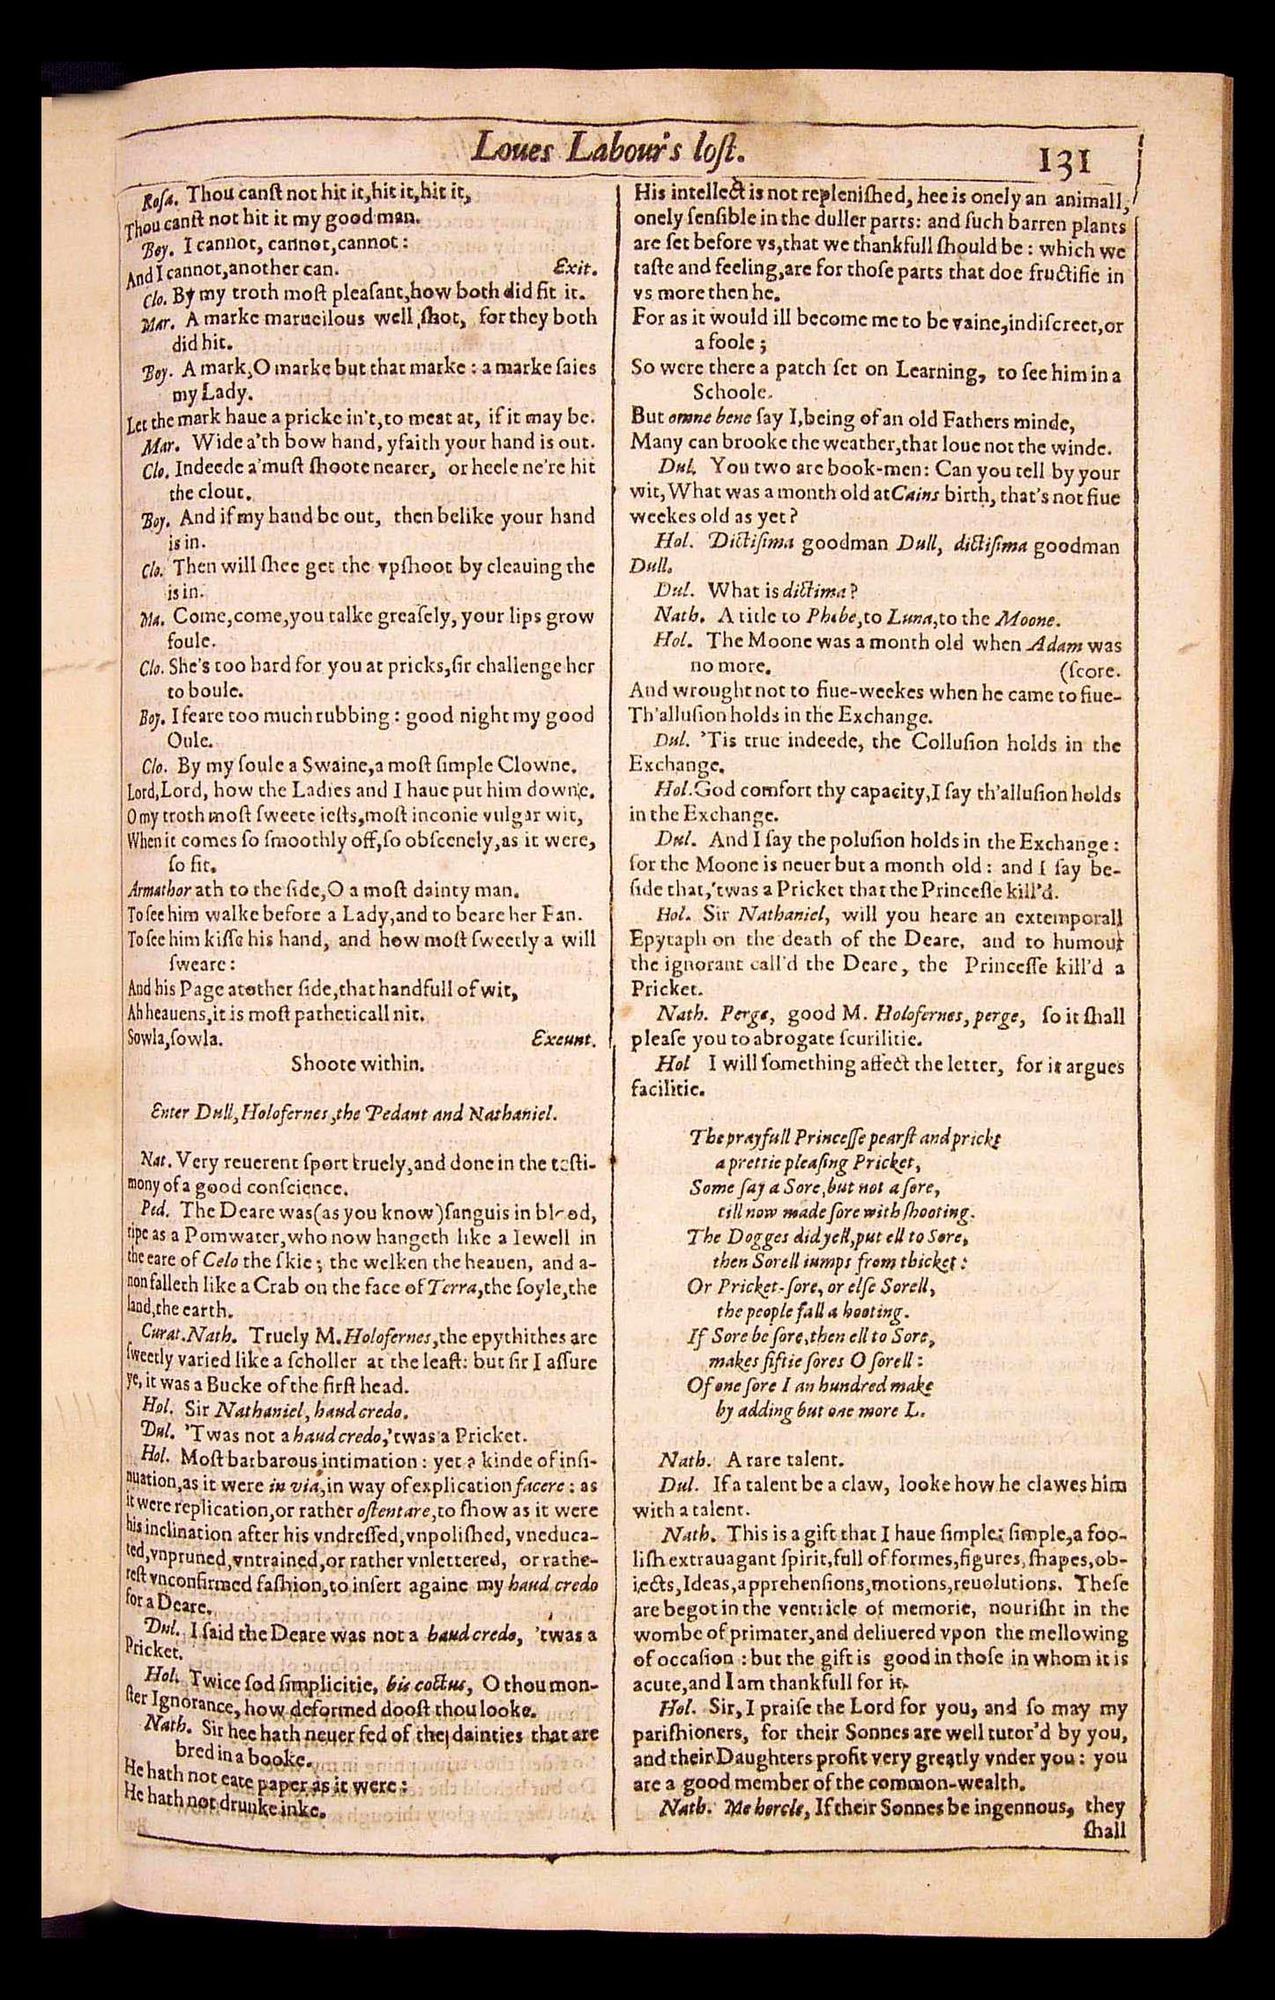 Loues Labour's lost. 131
Rosa. Thou canst not hit it, hit it, hit it,
Thou canst not hit it my good man.
Boy. I cannot, cannot, cannot:
And I cannot, another can. Exit.
Clo. By my troth most pleasant, how both did fit it.
Mar. A marke marueilous well shot, for they both
did hit.
Boy. A mark, O marke but that marke: a marke saies
my Lady.
Let the mark haue a pricke in't, to meat at, if it may be.
Mar. Wide a'th bow hand, yfaith your hand is out.
Clo. Indeede a'must shoote nearer, or heele ne're hit
the clout.
Boy. And if my hand be out, then belike your hand
is in.
Clo. Then will shee get the vpshoot by cleauing the
is in.
Ma. Come, come, you talke greasely, your lips grow
foule.
Clo. She's too hard for you at pricks, sir challenge her
to boule.
Boy. I feare too much rubbing: good night my good
Oule.
Clo. By my soule a Swaine, a most simple Clowne.
Lord, Lord, how the Ladies and I haue put him downe.
O my troth most sweete iests, most inconie vulgar wit,
When it comes so smoothly off, so obscenely, as it were,
so fit.
Armathor ath to the side, O a most dainty man.
To see him walke before a Lady, and to beare her Fan.
To see him kisse his hand, and how most sweetly a will
sweare:
And his Page atother side, that handfull of wit,
Ah heauens, it is most patheticall nit.
Sowla, sowla. Exeunt.
Shoote within.
Enter Dull, Holofernes, the Pedant and Nathaniel.
Nat. Very reuerent sport truely, and done in the testi-
mony of a good conscience.
Ped. The Deare was (as you know) sanguis in blood,
ripe as a Pomwater, who now hangeth like a Iewell in
the eare of Celo the skie; the welken the heauen, and a-
non falleth like a Crab on the face of Terra, the soyle, the
land, the earth.
Curat. Nath. Truely M. Holofernes, the epythithes are
sweetly varied like a scholler at the least: but sir I assure
ye, it was a Bucke of the first head.
Hol. Sir Nathaniel, haud credo.
Dul. 'Twas not a haud credo, 'twas a Pricket.
Hol. Most barbarous intimation: yet a kinde of insi-
nuation, as it were in via, in way of explication facere: as
it were replication, or rather ostentare, to show as it were
his inclination after his vndressed, vnpolished, vneduca-
ted, vnpruned, vntrained, or rather vnlettered, or rathe-
rest vnconfirmed fashion, to insert againe my haud credo
for a Deare.
Dul. I said the Deare was not a haud credo, 'twas a
Pricket.
Hol. Twice sod simplicitie, bis coctus, O thou mon-
ster Ignorance, how deformed doost thou looke.
Nath. Sir hee hath neuer fed of the dainties that are
bred in a booke.
He hath not eate paper as it were:
He hath not drunke inke.
His intellect is not replenished, hee is onely an animall,
onely sensible in the duller parts: and such barren plants
are set before vs, that we thankfull should be: which we
taste and feeling, are for those parts that doe fructifie in
vs more then he.
For as it would ill become me to be vaine, indiscreet, or
a foole;
So were there a patch set on Learning, to see him in a
Schoole.
But omne bene say I, being of an old Fathers minde,
Many can brooke the weather, that loue not the winde.
Dul. You two are book-men: Can you tell by your
wit, What was a month old at Cains birth, that's not fiue
weekes old as yet?
Hol. Dictisima goodman Dull, dictisima goodman
Dull.
Dul. What is dictima?
Nath. A title to Phebe, to Luna, to the Moone.
Hol. The Moone was a month old when Adam was
no more. (score.
And wrought not to fiue-weekes when he came to fiue-
Th'allusion holds in the Exchange.
Dul. 'Tis true indeede, the Collusion holds in the
Exchange.
Hol. God comfort thy capacity, I say th'allusion holds
in the Exchange.
Dul. And I say the polusion holds in the Exchange:
for the Moone is neuer but a month old: and I say be-
side that, 'twas a Pricket that the Princesse kill'd.
Hol. Sir Nathaniel, will you heare an extemporall
Epytaph on the death of the Deare, and to humour
the ignorant call'd the Deare, the Princesse kill'd a
Pricket.
Nath. Perge, good M. Holofernes, perge, so it shall
please you to abrogate scurilitie.
Hol I will something affect the letter, for it argues
facilitie.
The prayfull Princesse pearst and prickt
a prettie pleasing Pricket,
Some say a Sore, but not a sore,
till now made sore with shooting.
The Dogges did yell, put ell to Sore,
then Sorell iumps from thicket:
Or Pricket-sore, or else Sorell,
the people fall a hooting.
If Sore be sore, then ell to Sore,
makes fiftie sores O sorell:
Of one sore I an hundred make
by adding but one more L.
Nath. A rare talent.
Dul. If a talent be a claw, looke how he clawes him
with a talent.
Nath. This is a gift that I haue simple: simple, a foo-
lish extrauagant spirit, full of formes, figures, shapes, ob-
iects, Ideas, apprehensions, motions, reuolutions. These
are begot in the ventricle of memorie, nourisht in the
wombe of primater, and deliuered vpon the mellowing
of occasion: but the gift is good in those in whom it is
acute, and I am thankfull for it.
Hol. Sir, I praise the Lord for you, and so may my
parishioners, for their Sonnes are well tutor'd by you,
and their Daughters profit very greatly vnder you: you
are a good member of the common-wealth.
Nath. Me hercle, If their Sonnes be ingennous, they
shall